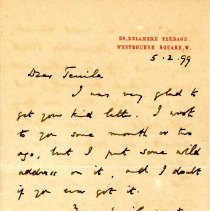 29, DELAMERE TERRACE,
WESTBOURNE SQUARE, W.
5. 2. 99
Dear
I was very glad to
get your kind letter. I wrote
to you some month or two
ago, but I put some wild
address on it, and I doubt
if you ever got it.